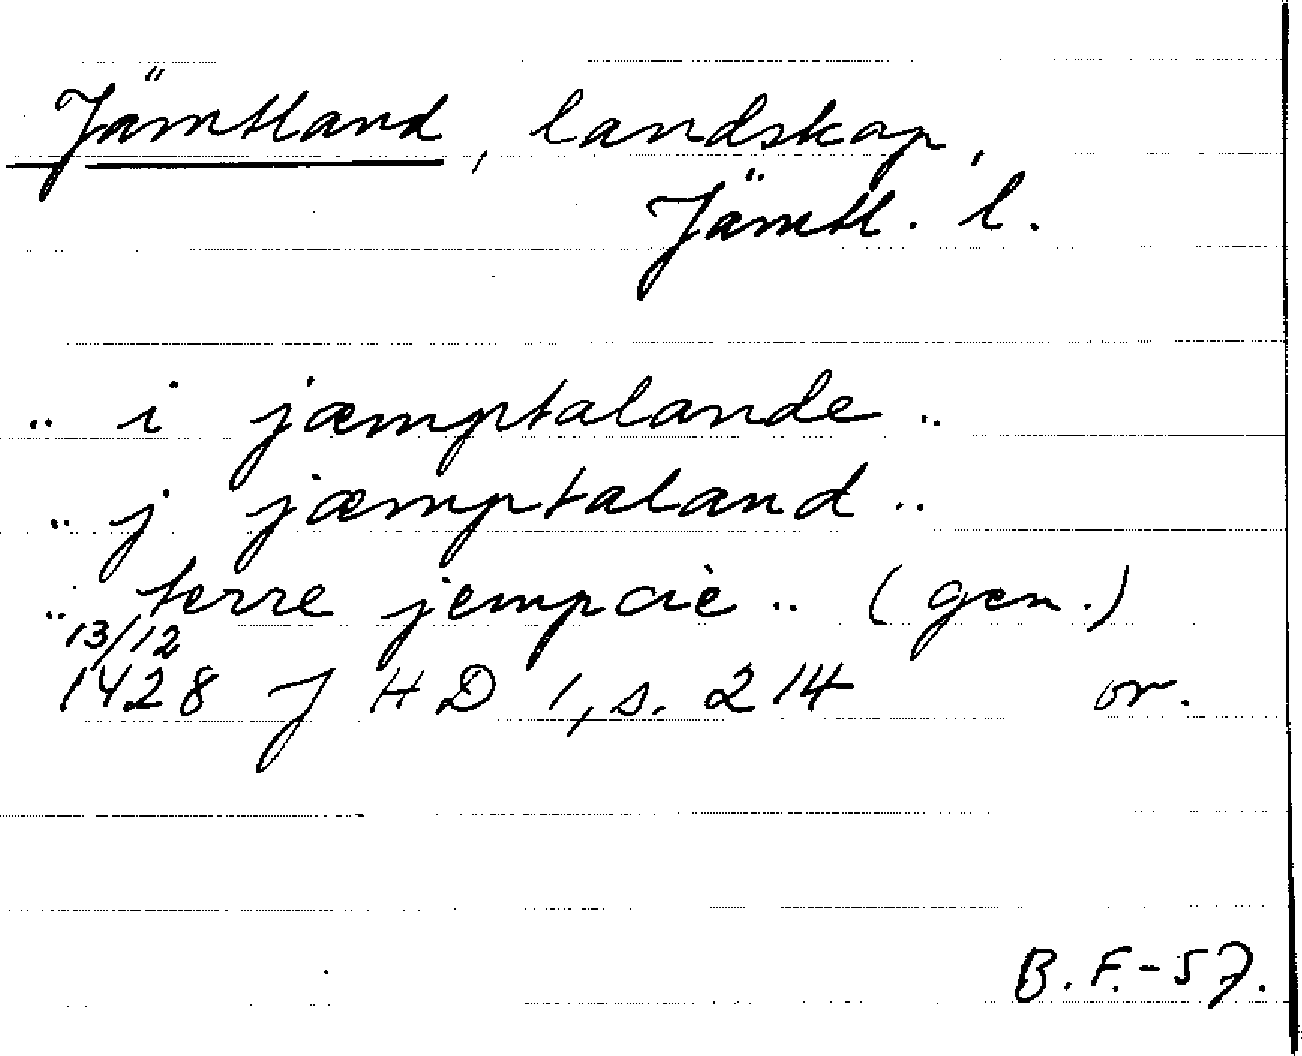 Jämtland, landskap,
Jämtl. l.
.. i jæmptalande ..
.. j jæmptaland ..
.. terre jempcie .. (gen.)
13/12
1428 J H D 1, s. 214 or.
B. F. - 57.